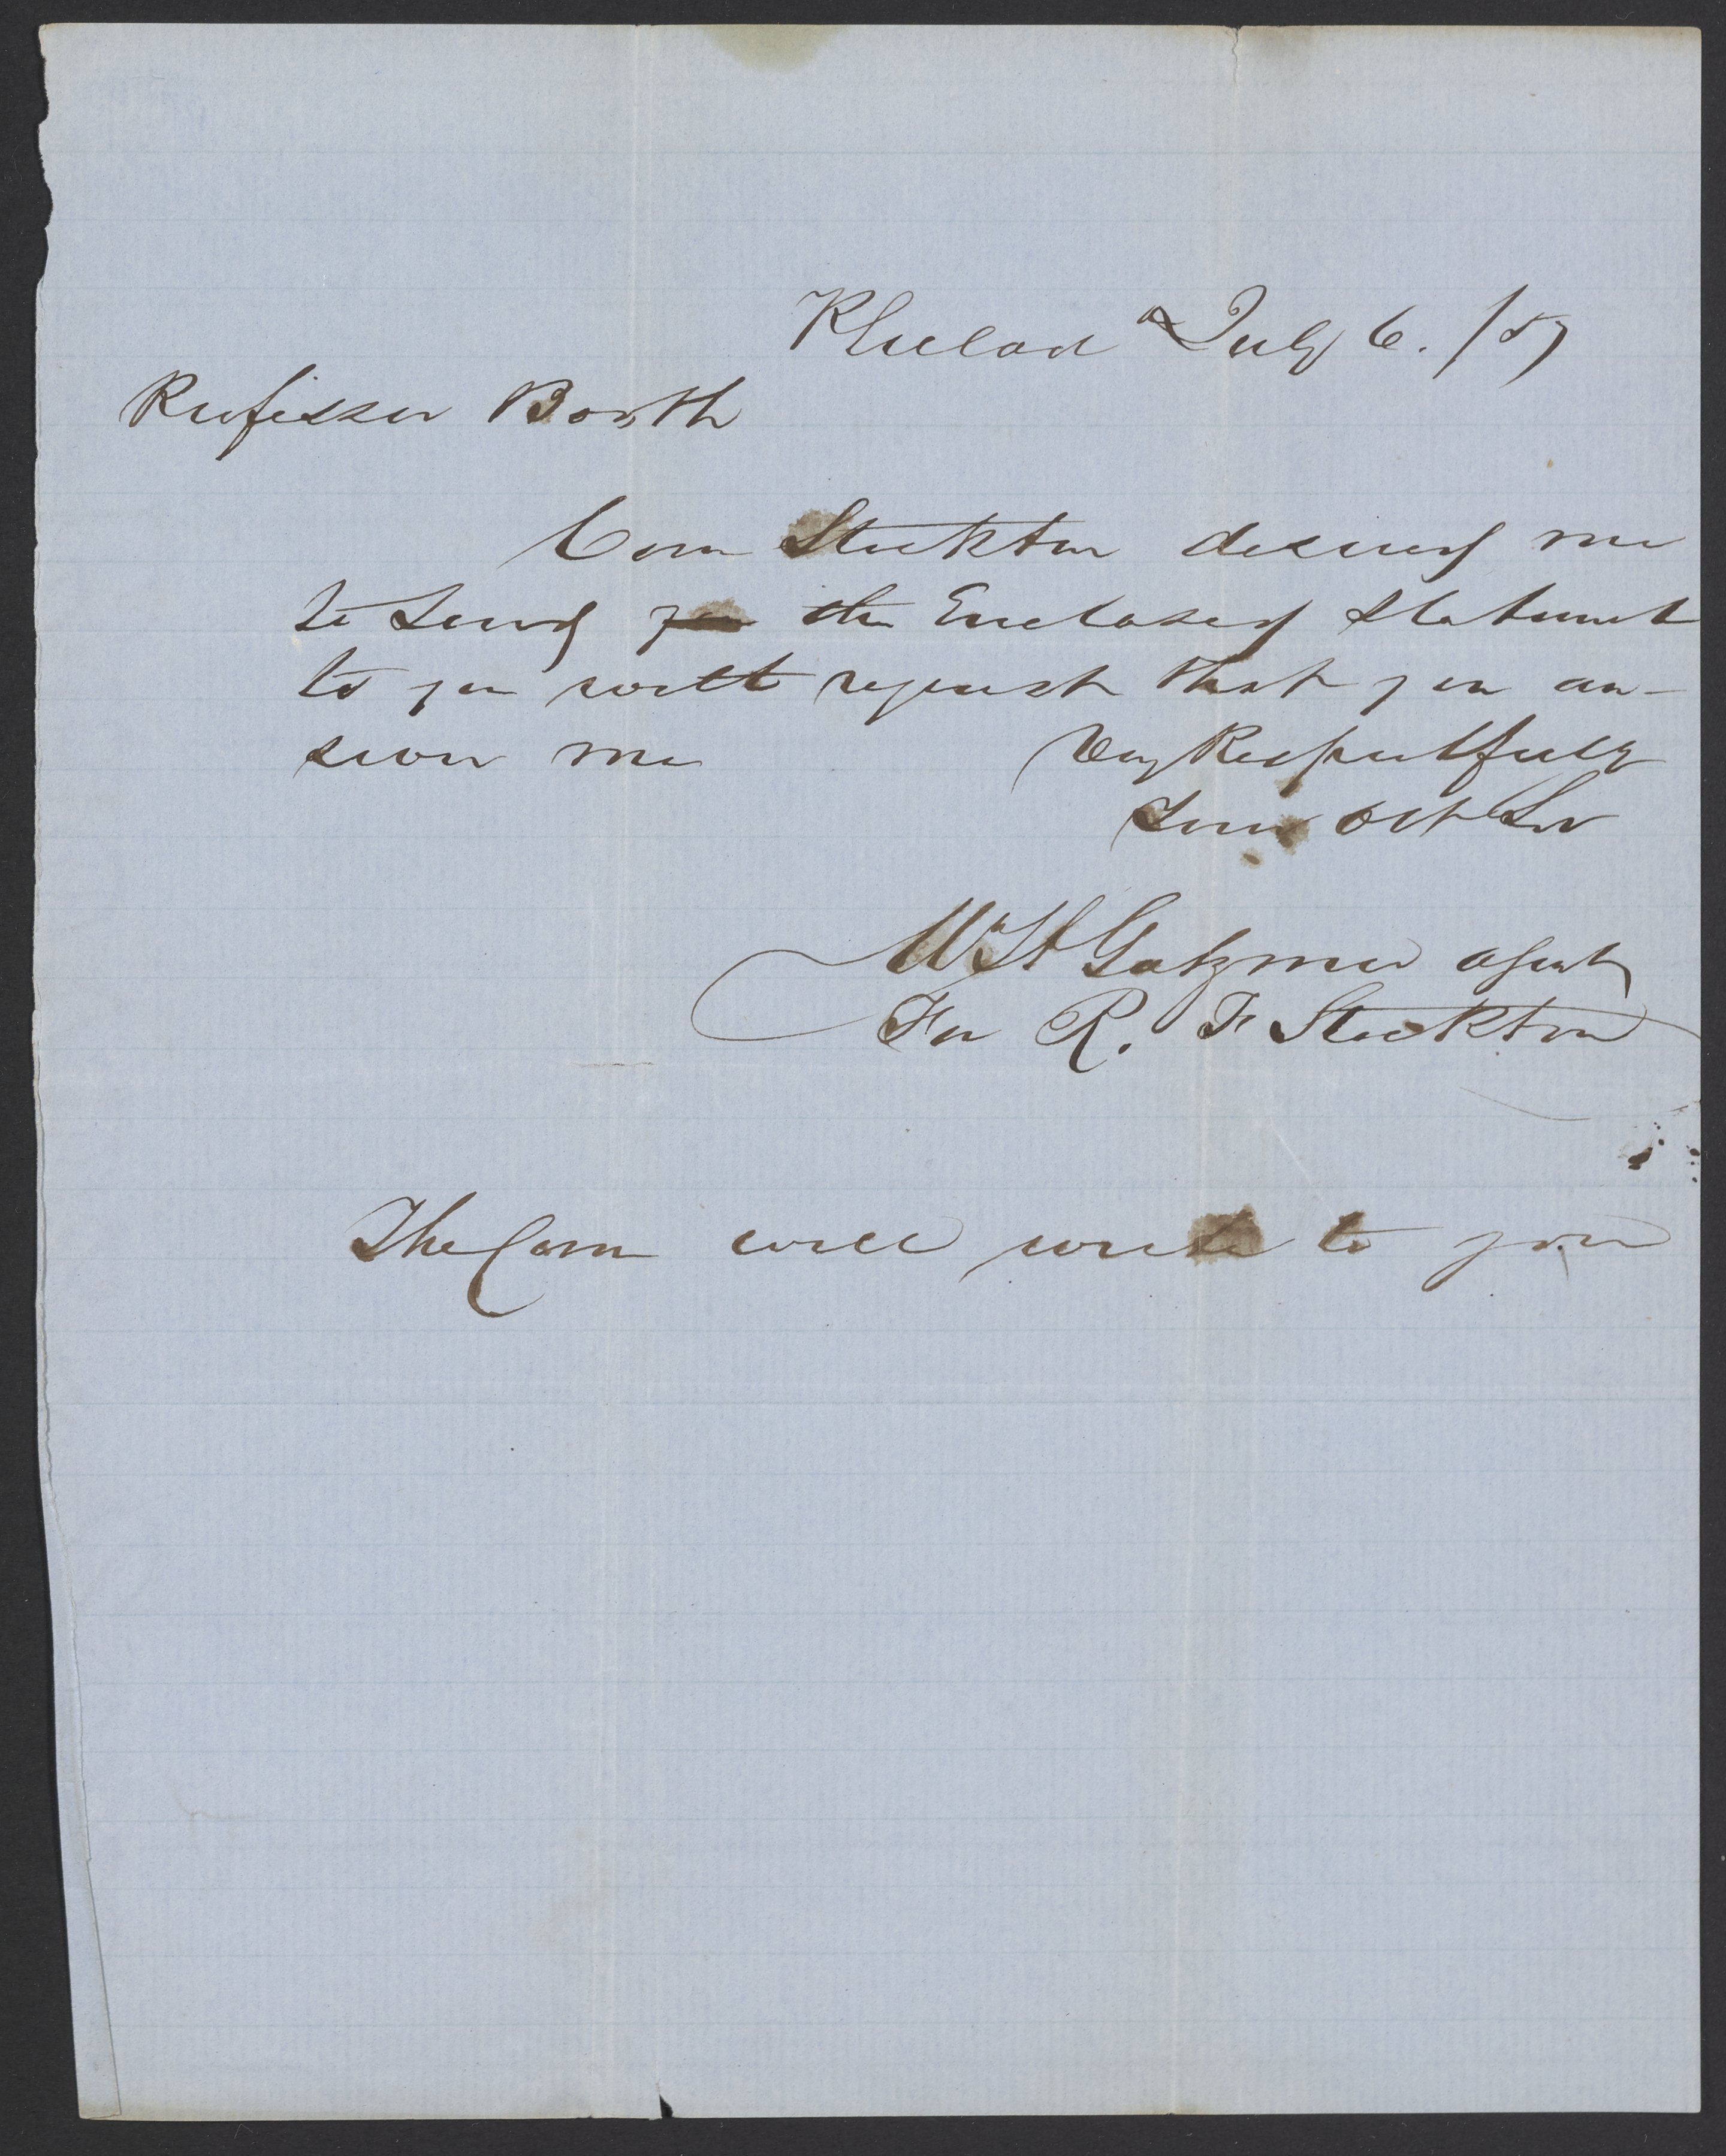 Philada July 6. /57
Professor Booth
Com Stockton desired me
to send you the Enclosed statement
to you with request that you an-
swer me Very Respectfully
Your Obt Sv
Wm H Gatzmer agent
For R. F Stockton
The Com will write to you